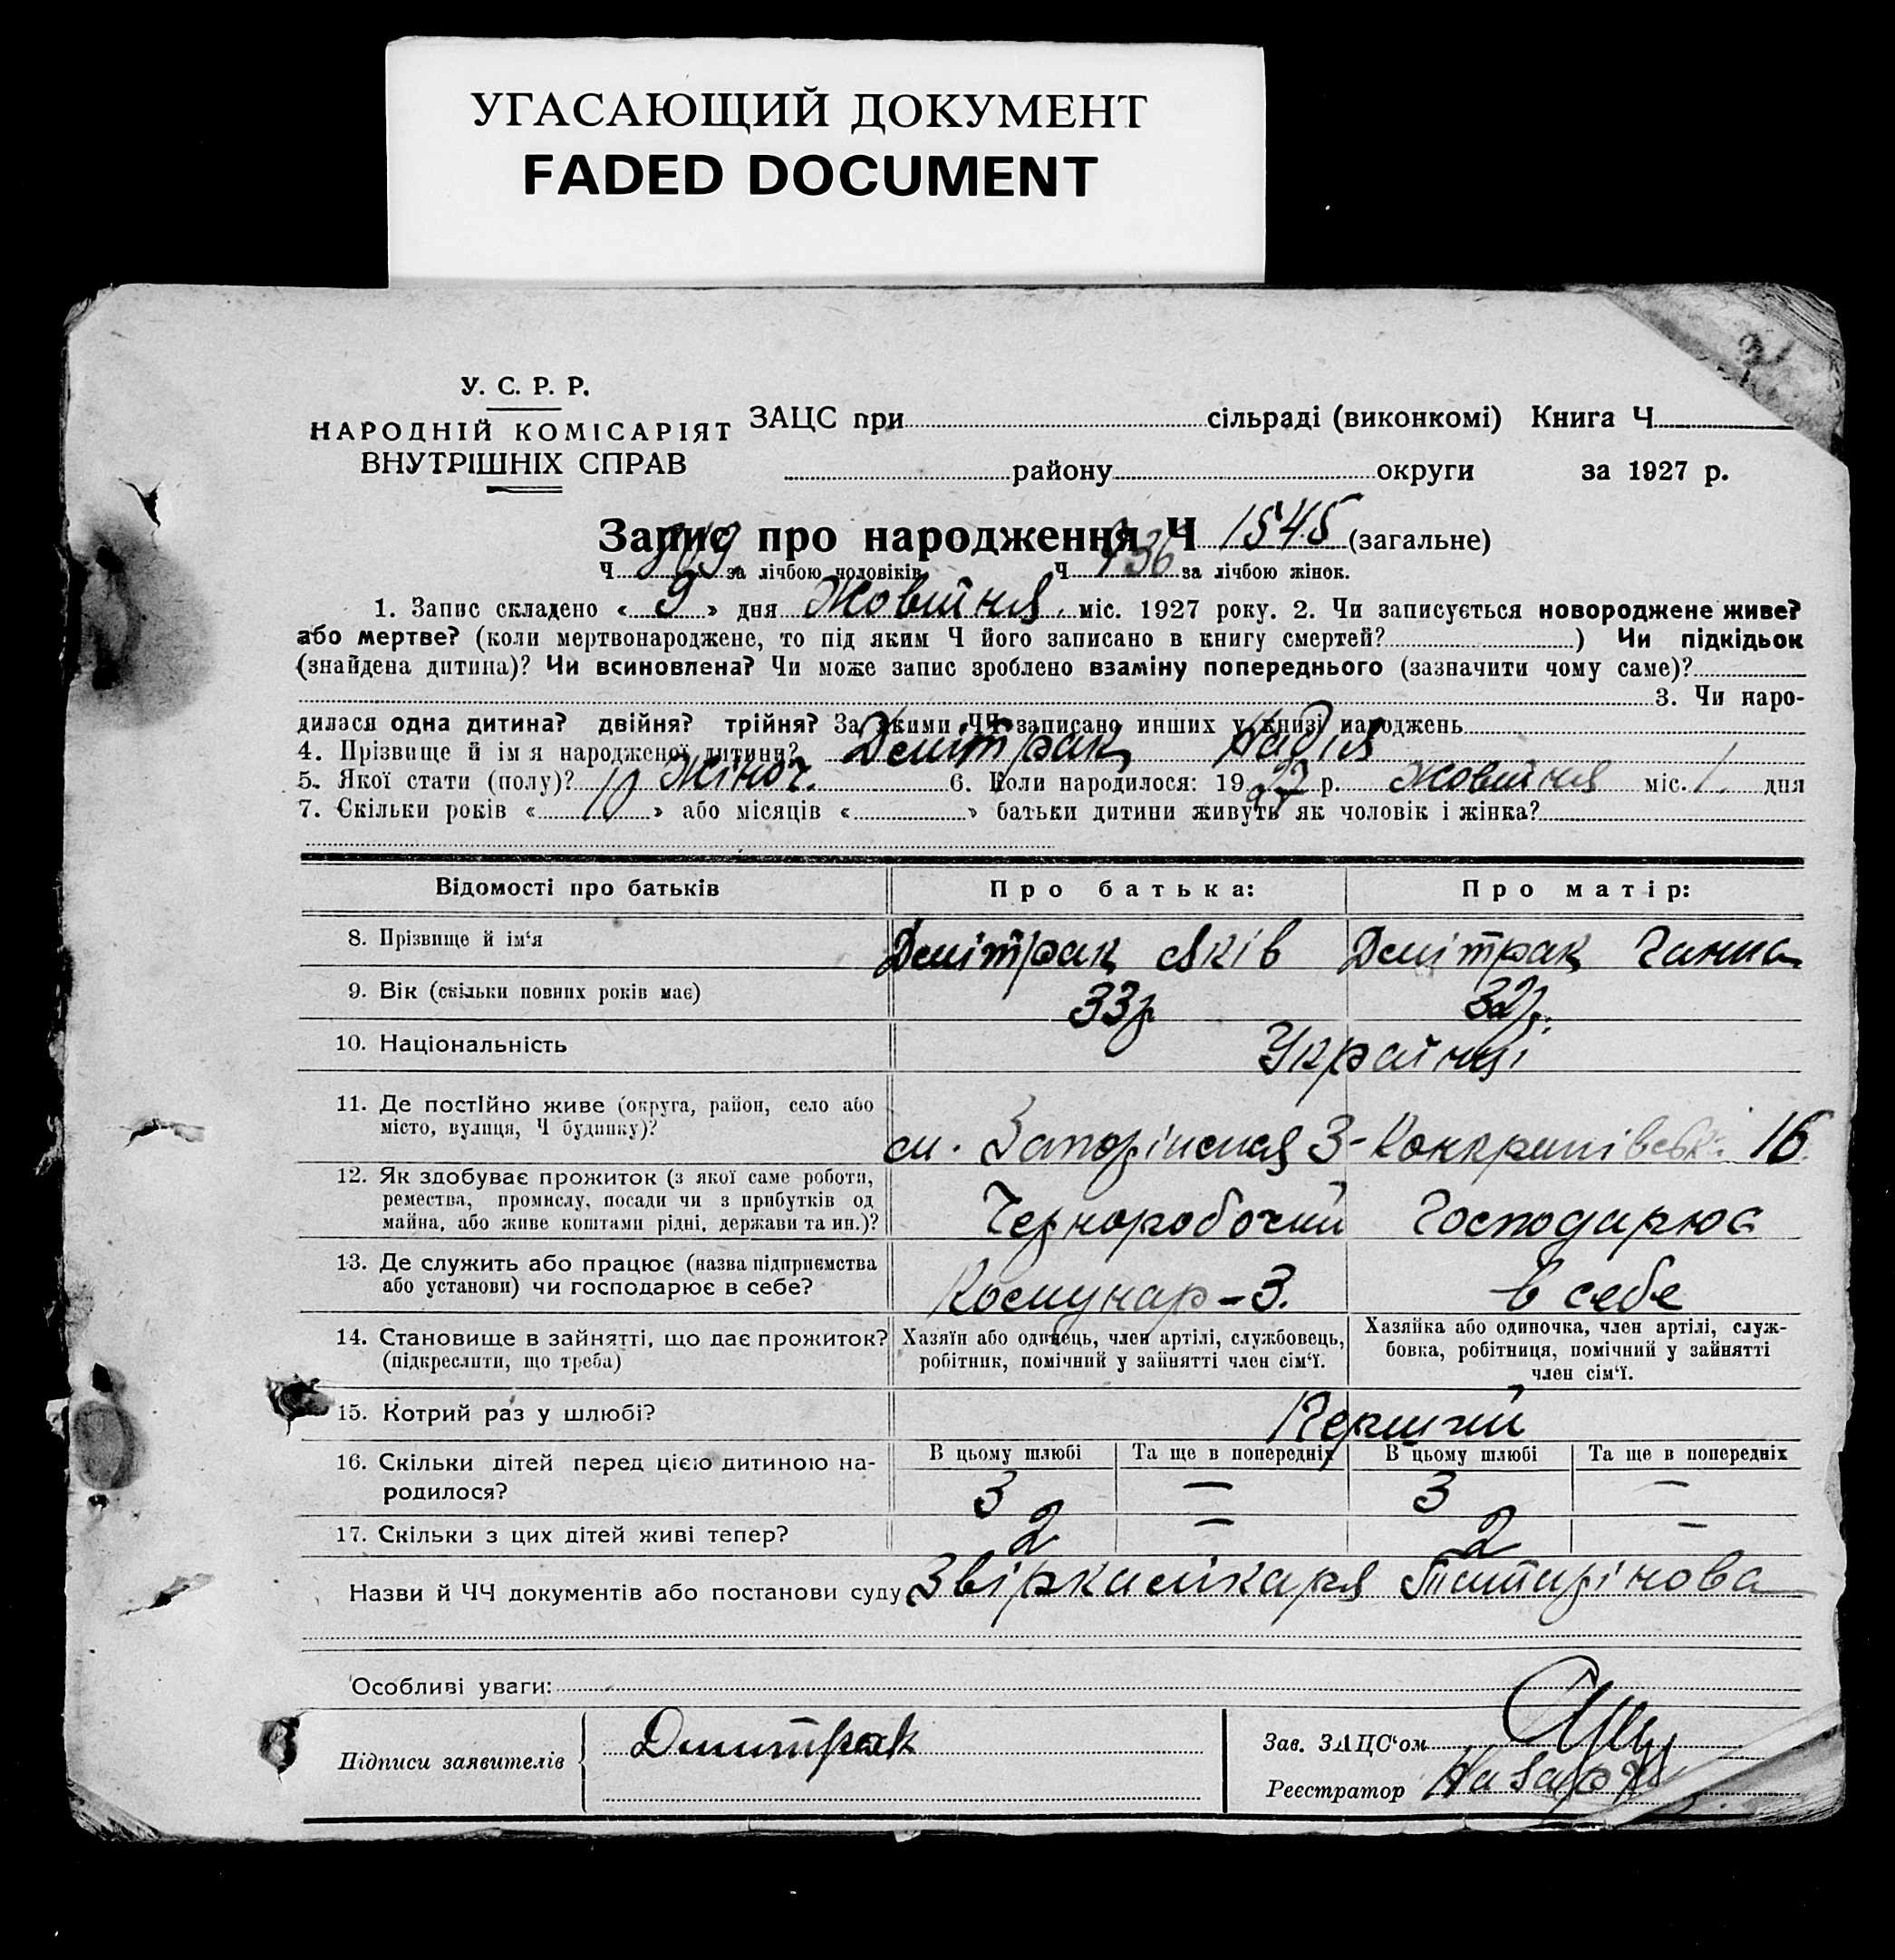 УГАСАЮЩИЙ ДОКУМЕНТ
FADED DOCUMENT
У. С. Р. Р.
НАРОДНІЙ КОМІСАРІЯТ
ВНУТРІШНІХ СПРАВ
ЗАЦС при сільраді (виконкомі) Книга Ч
району округи за 1927 р.
Запис про народження Ч 1545 (загальне)
Ч за лічбою чоловіків Ч 736 за лічбою жінок.
1. Запис складено « 9 » дня Жовтня міс. 1927 року. 2. Чи записується новороджене живе?
або мертве? (коли мертвонароджене, то під яким Ч його записано в книгу смертей? ) Чи підкідьок
(знайдена дитина)? Чи всиновлена? Чи може запис зроблено взаміну попереднього (зазначити чому саме)?
3. Чи наро-
дилася одна дитина? двійня? трійня? За якими ЧЧ записано инших у книзі народжень
4. Прізвище й ім я народженої дитини? Дмітрак Надія
5. Якої стати (полу)? Жіноч. 6. Коли народилося: 1927 р. Жовтня міс. 1 дня
7. Скільки років « 10 » або місяців « » батьки дитини живуть як чоловік і жінка?
Відомості про батьків Про батька: Про матір:
8. Прізвище й ім‘я Дмітрак Яків Дмітрак Ганна
9. Вік (скільки повних років має) 33 р. 32 р.
10. Національність Українці
11. Де постІйно живе (округа, район, село або
місто, вулиця, Ч будинку)? м. Запоріжжя 3- 16
12. Як здобуває прожиток (з якої саме роботи,
ремества, промислу, посади чи з прибутків од
майна, або живе коштами рідні, держави та ин.)? Черноробочий Господарює
13. Де служить або працює (назва підприємства
або установи) чи господарює в себе? Комунар-З. в себе
14. Становище в зайнятті, що дає прожиток?
(підкреслити, що треба)
Хазяїн або одинець, член артілі, службовець,
робітник, помічний у зайнятті член сім‘ї.
Хазяйка або одиночка, член артілі, служ-
бовка, робітниця, помічний у зайнятті
член сім‘ї.
15. Котрий раз у шлюбі? Перший
В цьому шлюбі Та ще в попередніх В цьому шлюбі Та ще в попередніх
16. Скільки дітей перед цією дитиною на-
родилося? 3 — 3 —
17. Скільки з цих дітей живі тепер? 2 — 2 —
Назви й ЧЧ документів або постанови суду
Особливі уваги:
Підписи заявителів Дмитрак
Зав. ЗАЦС‘ом
Реєстратор